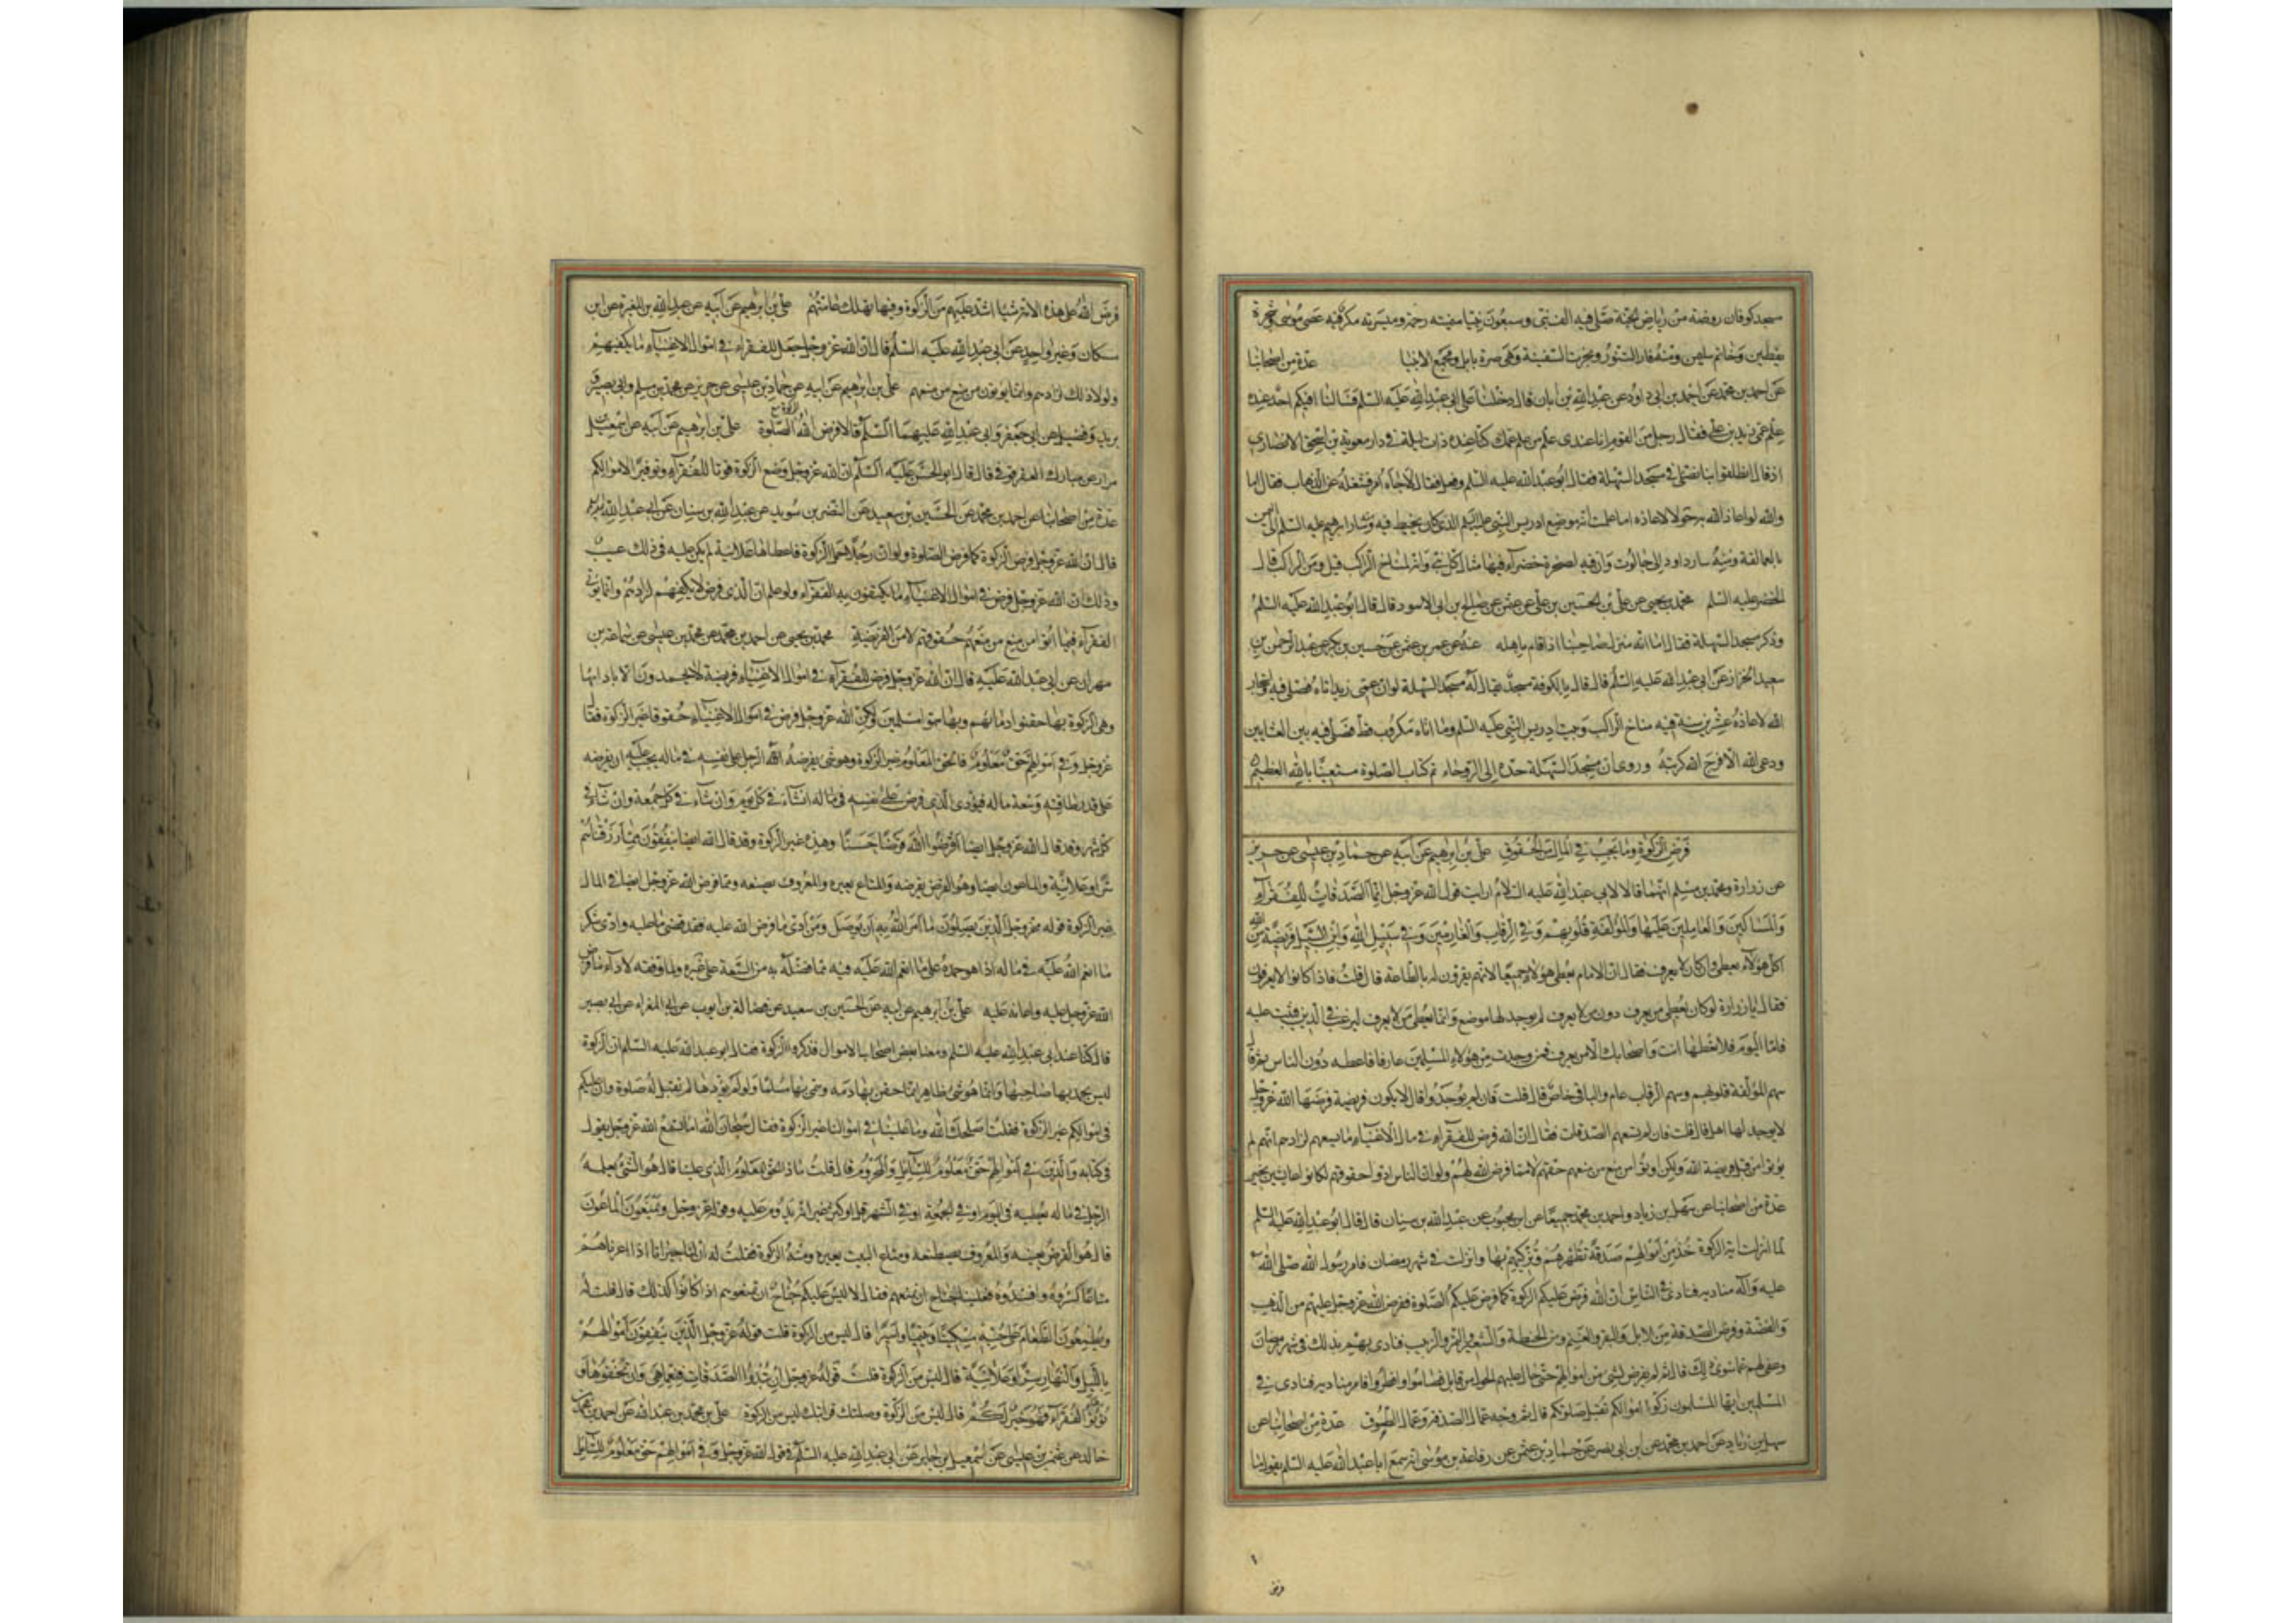 مسجد كوفان روضة من رياض الجنة صلى فيه الف نبى وسبعون نبيا ميمنته رحمة وميسرته مكر فيه عصى موسى وشجرة
يقطين وخاتم سليمن ومنه فار التنور ونجرت السفينة وهى صرة بابل ومجمع الانبيا عدة من اصحابنا
عن احمد بن محمد عن احمد بن ابى داود عن عبد الله بن ابان قال دخلنا على ابى عبد الله عليه السلم فسالنا افيكم احد عنده
علم عمى زيد بن على فقال رجل من القوم انا عندى علم من علم عمك كنا عنده ذات ليلة فى دار معوية بن اسحق الانصارى
اذ قال انطلقوا بنا نصلى فى مسجد السهلة فقال ابو عبد الله عليه السلم وفعل فقال لا جاءه امر فشغله عن الذهاب فقال اما
والله لو اعاذ الله به حولا لاعاذه اما علمت انه موضع ادريس النبى عليه السلم الذى كان يخيط فيه ومنه سار ابرهيم عليه السلم الى اليمن
بالعمالقة ومنه سار داود الى جالوت وان فيه لصخرة خضراء فيها مثال كل نبى وانه لمناخ الراكب قيل ومن الراكب قال
الخضر عليه السلم محمد بن يحيى عن على بن الحسين بن على عن عثمن عن صالح بن ابى الاسود قال قال ابو عبد الله عليه السلم
وذكر مسجد السهلة فقال اما انه منزل صاحبنا اذا قام باهله عنه عن عمر بن عثمن عن حسين بن بكر عن عبد الرحمن بن
سعيد الخزاز عن ابى عبد الله عليه السلم قال قال بالكوفة مسجد يقال له مسجد السهلة لو ان عمى زيد اتاه فصلى فيه واستجار
الله لاعاذه عشرين سنة فيه مناخ الراكب وبيت ادريس النبى عليه السلم وما اتاه مكروب قط فصلى فيه بين العشايين
ودعى الله الا فرج الله كربته وروى ان مسجد السهلة حده الى الروحاء تم كتاب الصلوة مستعينا بالله العظيم
فرض الزكوة وما يجب فى المال من الحقوق على بن ابرهيم عن ابيه عن حماد بن عيسى عن حريز
عن زرارة ومحمد بن مسلم انهما قالا لابى عبد الله عليه السلام ارايت قول الله عز وجل انما الصدقات للفقراء
والمساكين والعاملين عليها والمؤلفة قلوبهم وفى الرقاب والغارمين وفى سبيل الله وابن السبيل فريضة من الله
اكل هؤلاء يعطى وان كان لا يعرف فقال ان الامام يعطى هؤلاء جميعا لانهم يقرون له بالطاعة قال قلت فاذا كانوا لا يعرفون
فقال يا زرارة لو كان يعطى من يعرف دون من لا يعرف لم يوجد لها موضع وانما يعطى من لا يعرف ليرغب فى الدين فيثبت عليه
فاما اليوم فلا تعطها انت واصحابك الا من يعرف فمن وجدت من هؤلاء المسلمين عارفا فاعطه دون الناس ثم قال
سهم المؤلفة قلوبهم وسهم الرقاب عام والباقى خاص قال قلت فان لم يوجدوا قال لا يكون فريضة فرضها الله عز وجل
لا يوجد لها اهل قال قلت فان لم تسعهم الصدقات فقال ان الله فرض للفقراء فى مال الاغنياء ما يسعهم ولو علم ان ذلك لا يسعهم لزادهم انهم لم
يؤتوا من قبل فريضة الله ولكن اوتوا من منع من منعهم حقهم لا مما فرض الله لهم ولو ان الناس ادوا حقوقهم لكانوا عايشين بخير
عدة من اصحابنا عن سهل بن زياد واحمد بن محمد جميعا عن ابن محبوب عن عبد الله بن سنان قال قال ابو عبد الله عليه السلم
لما انزلت اية الزكوة خذ من اموالهم صدقة تطهرهم وتزكيهم بها وانزلت فى شهر رمضان فامر رسول الله صلى الله
عليه واله مناديه فنادى فى الناس ان الله فرض عليكم الزكوة كما فرض عليكم الصلوة ففرض الله عز وجل عليهم من الذهب
والفضة وفرض الصدقة من الابل والبقر والغنم ومن الحنطة والشعير والتمر والزبيب فنادى بهم بذلك فى شهر رمضان
وعفى لهم عما سوى ذلك قال ثم لم يفرض لشئ من اموالهم حتى حال عليهم الحول من قابل فصاموا وافطروا فامر مناديه فنادى فى
المسلمين ايها المسلمون زكوا اموالكم تقبل صلوتكم قال ثم وجه عمال الصدقة وعمال الطسوق عدة من اصحابنا عن
سهل بن زياد عن احمد بن محمد عن ابن ابى نصر عن حماد بن عثمن عن رفاعة بن موسى انه سمع ابا عبد الله عليه السلم يقول ما
فرض الله على هذه الامة شيئا اشد عليهم من الزكوة وفيها تهلك عامتهم على بن ابرهيم عن ابيه عن عبد الله بن المغيرة عن ابن
مسكان وغير واحد عن ابى عبد الله عليه السلم قال ان الله عز وجل جعل للفقراء فى اموال الاغنياء ما يكفيهم
ولولا ذلك لزادهم وانما يؤتون من منع من منعهم على بن ابرهيم عن ابيه عن حماد بن عيسى عن حريز عن محمد بن مسلم وابى بصير و
بريد وفضيل عن ابى جعفر وابى عبد الله عليهما السلم قالا فرض الله الزكوة مع الصلوة على بن ابرهيم عن ابيه عن اسمعيل بن
مرار عن مبارك العقرقوفى قال قال ابو الحسن عليه السلم ان الله عز وجل وضع الزكوة قوتا للفقراء وتوفيرا لاموالكم
عدة من اصحابنا عن احمد بن محمد عن الحسين بن سعيد عن النضر بن سويد عن عبد الله بن سنان عن ابى عبد الله عليه السلم
قال ان الله عز وجل فرض الزكوة كما فرض الصلوة ولو ان رجلا حمل الزكوة فاعطاها علانية لم يكن عليه فى ذلك عيب
وذلك ان الله عز وجل فرض فى اموال الاغنياء ما يكتفون به الفقراء ولو علم ان الذى فرض لا يكفيهم لزادهم وانما يؤتى
الفقراء فيما اتوا من منع من منعهم حقوقهم لا من الفريضة محمد بن يحيى عن احمد بن محمد عن محمد بن عيسى عن سماعة بن
مهران عن ابى عبد الله عليه قال ان الله عز وجل فرض للفقراء فى اموال الاغنياء فريضة لا يحمدون الا بادائها
وهى الزكوة بها حقنوا دماءهم وبها سموا مسلمين ولكن الله عز وجل فرض فى اموال الاغنياء حقوقا غير الزكوة فقال
عز وجل وفى اموالهم حق معلوم فالحق المعلوم غير الزكوة وهو شئ يفرضه الرجل على نفسه فى ماله يجب عليه ان يفرضه
على قدر طاقته وسعة ماله فيؤدى الذى فرض على نفسه فى ماله ان شاء فى كل يوم وان شاء فى كل جمعة وان شاء فى
كل شهر وقد قال الله عز وجل ايضا اقرضوا الله قرضا حسنا وهذه غير الزكوة وقد قال الله ايضا ينفقون مما رزقناهم
سرا وعلانية والماعون ايضا وهو القرض يقرضه والمتاع يعيره والمعروف يصنعه ومما فرض الله عز وجل ايضا فى المال
غير الزكوة قوله عز وجل الذين يصلون ما امر الله به ان يوصل ومن ادى ما فرض الله عليه فقد قضى ما عليه وادى شكر
ما انعم الله عليه فى ماله اذا هو حمده على ما انعم الله عليه فيه مما فضله به من السعة على غيره ولما وفقه لاداء ما فرض
الله عز وجل عليه واعانه عليه على بن ابرهيم عن ابيه عن الحسين بن سعيد عن فضالة بن ايوب عن ابى المغراء عن ابى بصير
قال كنا عند ابى عبد الله عليه السلم ومعنا بعض اصحاب الاموال فذكروا الزكوة فقال ابو عبد الله عليه السلم ان الزكوة
ليس يحمد بها صاحبها وانما هو شئ ظاهر انما حقن بها دمه وسمى بها مسلما ولو لم يؤدها لم تقبل له صلوة وان عليكم
فى اموالكم غير الزكوة فقلت اصلحك الله وما علينا فى اموالنا غير الزكوة فقال سبحان الله اما تسمع الله عز وجل يقول
فى كتابه والذين فى اموالهم حق معلوم للسائل والمحروم قال قلت ماذا الحق المعلوم الذى علينا قال هو الشئ يعمله
الرجل فى ماله يعطيه فى اليوم او فى الجمعة او فى الشهر قل او كثر غير انه يدوم عليه وقوله عز وجل ويمنعون الماعون
قال هو القرض يقرضه والمعروف يصطنعه ومتاع البيت يعيره ومنه الزكوة فقلت له ان لنا جيرانا اذا اعرناهم
متاعا كسروه وافسدوه فعلينا جناح ان نمنعهم فقال لا ليس عليكم جناح ان تمنعوهم اذا كانوا كذلك قال قلت له
ويطعمون الطعام على حبه مسكينا ويتيما واسيرا قال ليس من الزكوة قلت قوله عز وجل الذين ينفقون اموالهم
بالليل والنهار سرا وعلانية قال ليس من الزكوة قلت قوله عز وجل ان تبدوا الصدقات فنعما هى وان تخفوها و
تؤتوها الفقراء فهو خير لكم قال ليس من الزكوة وصلتك قرابتك ليس من الزكوة على بن محمد بن عبد الله عن احمد بن محمد بن
خالد عن عثمن بن عيسى عن اسمعيل بن جابر عن ابى عبد الله عليه السلم فى قول الله عز وجل وفى اموالهم حق معلوم للسائل
فرض